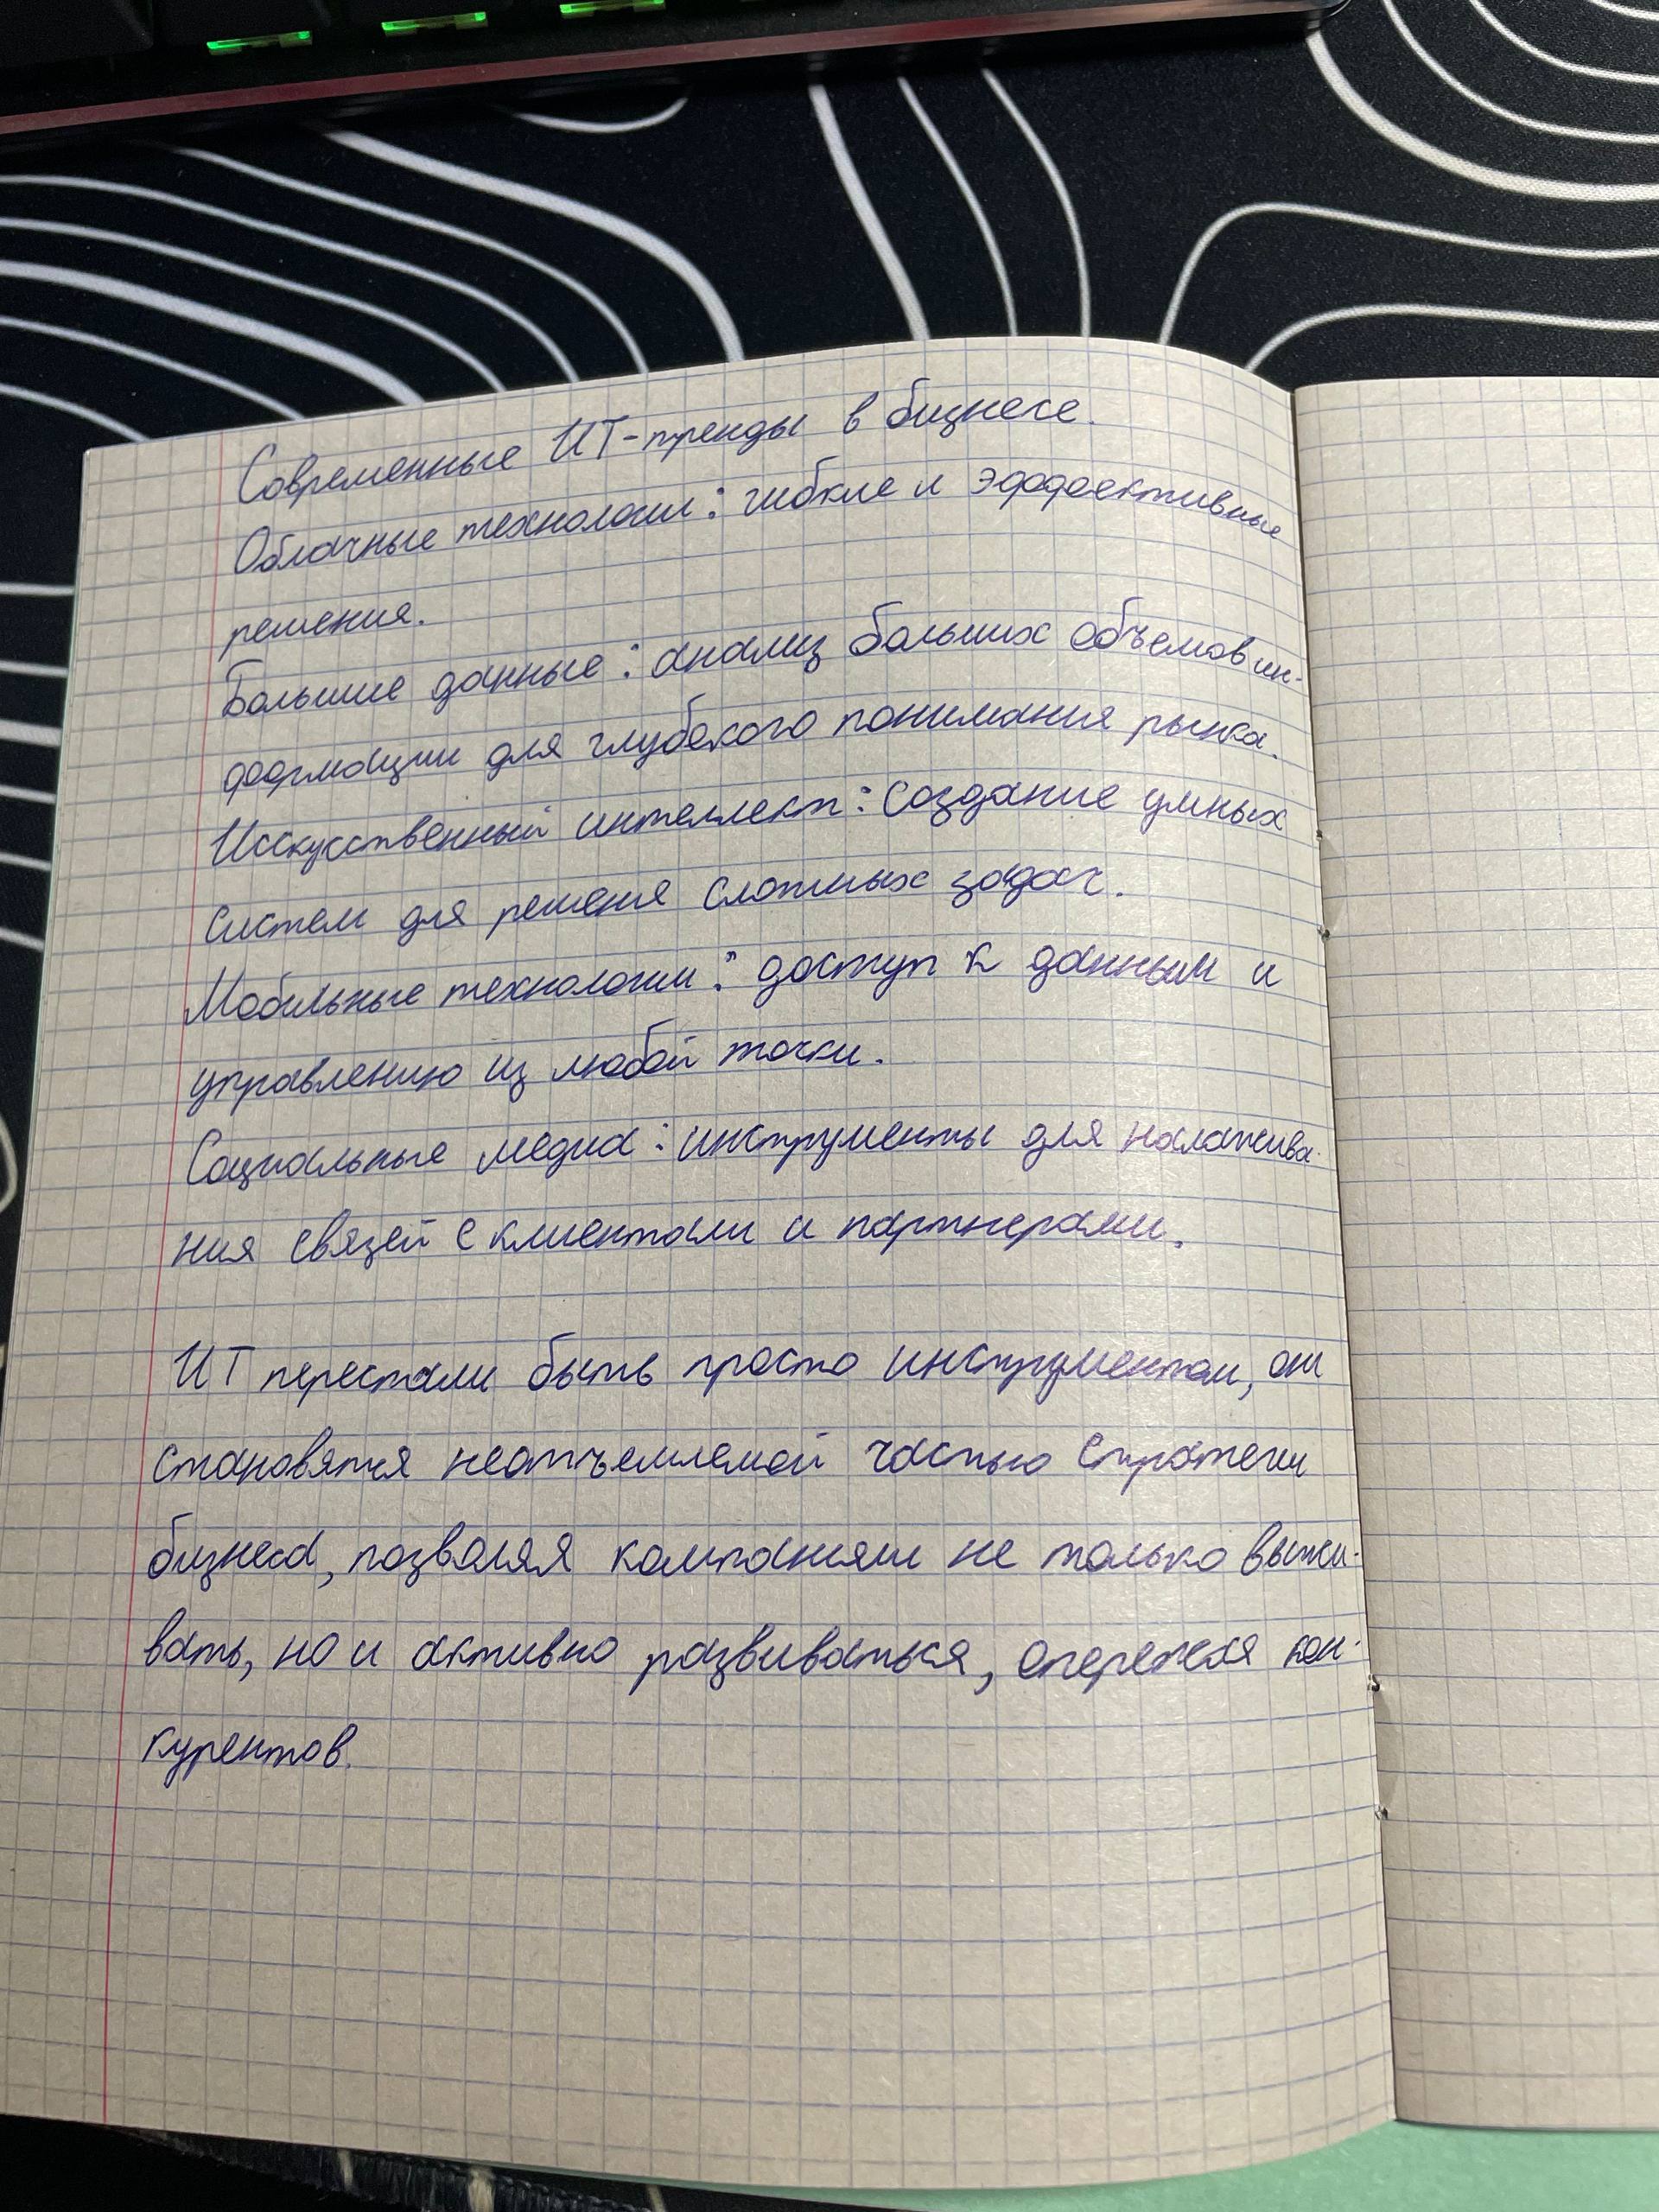 Современные ИТ-тренды в бизнесе.
Облачные технологии: гибкие и эффективные
решения.
Большие данные: анализ больших объемов ин-
формации для глубокого понимания рынка.
Исскусственный интеллект: создание умных
систем для решения сложных задач.
Мобильные технологии: доступ к данным и
управлению из любой точки.
Социальные медиа: инструменты для налажива-
ния связей с клиентами и партнерами.
ИТ перестали быть просто инструментом, они
становятся неотъемлемой частью стратегии
бизнеса, позволяя компаниям не только выжи-
вать, но и активно развиваться, опережая кон-
курентов.